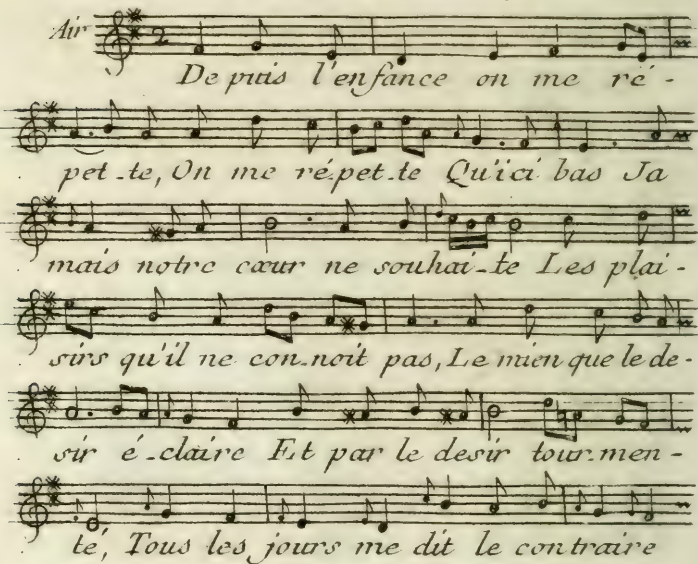 Air
De puis l'enfance on me ré-
pet-te, On me répet-te Qu'ici bas Ja
mais notre cœur ne souhai-te Les plai-
sirs qu'il ne con-noit pas, Le mien que le de-
sir é-claire Et par le desir tour-men-
té, Tous les jours me dit le contraire